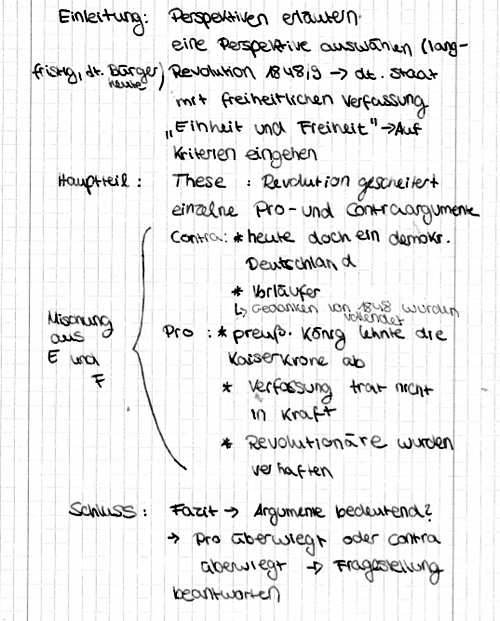 Einleitung: Perspektiven erläutern
eine Perspektive auswählen (lang-
fristig, dt. Bürger heute) Revolution 1848/9 → dt. Staat
mit freiheitlichen Verfassung
„Einheit und Freiheit" → Auf
Kriterien eingehen
Hauptteil: These: Revolution gescheitert
einzelne Pro- und Contraargumente
Contra: * heute doch ein demokr.
Deutschland
* Vorläufer
↳ Gedanken von 1848 wurden
vollendet
Mischung
aus
E und
F
Pro: * preuß. König lehnte die
Kaiserkrone ab
* Verfassung trat nicht
in Kraft
* Revolutionäre wurden
verhaften
Schluss: Fazit → Argumente bedeutend?
→ Pro überwiegt oder contra
überwiegt → Fragestellung
beantworten